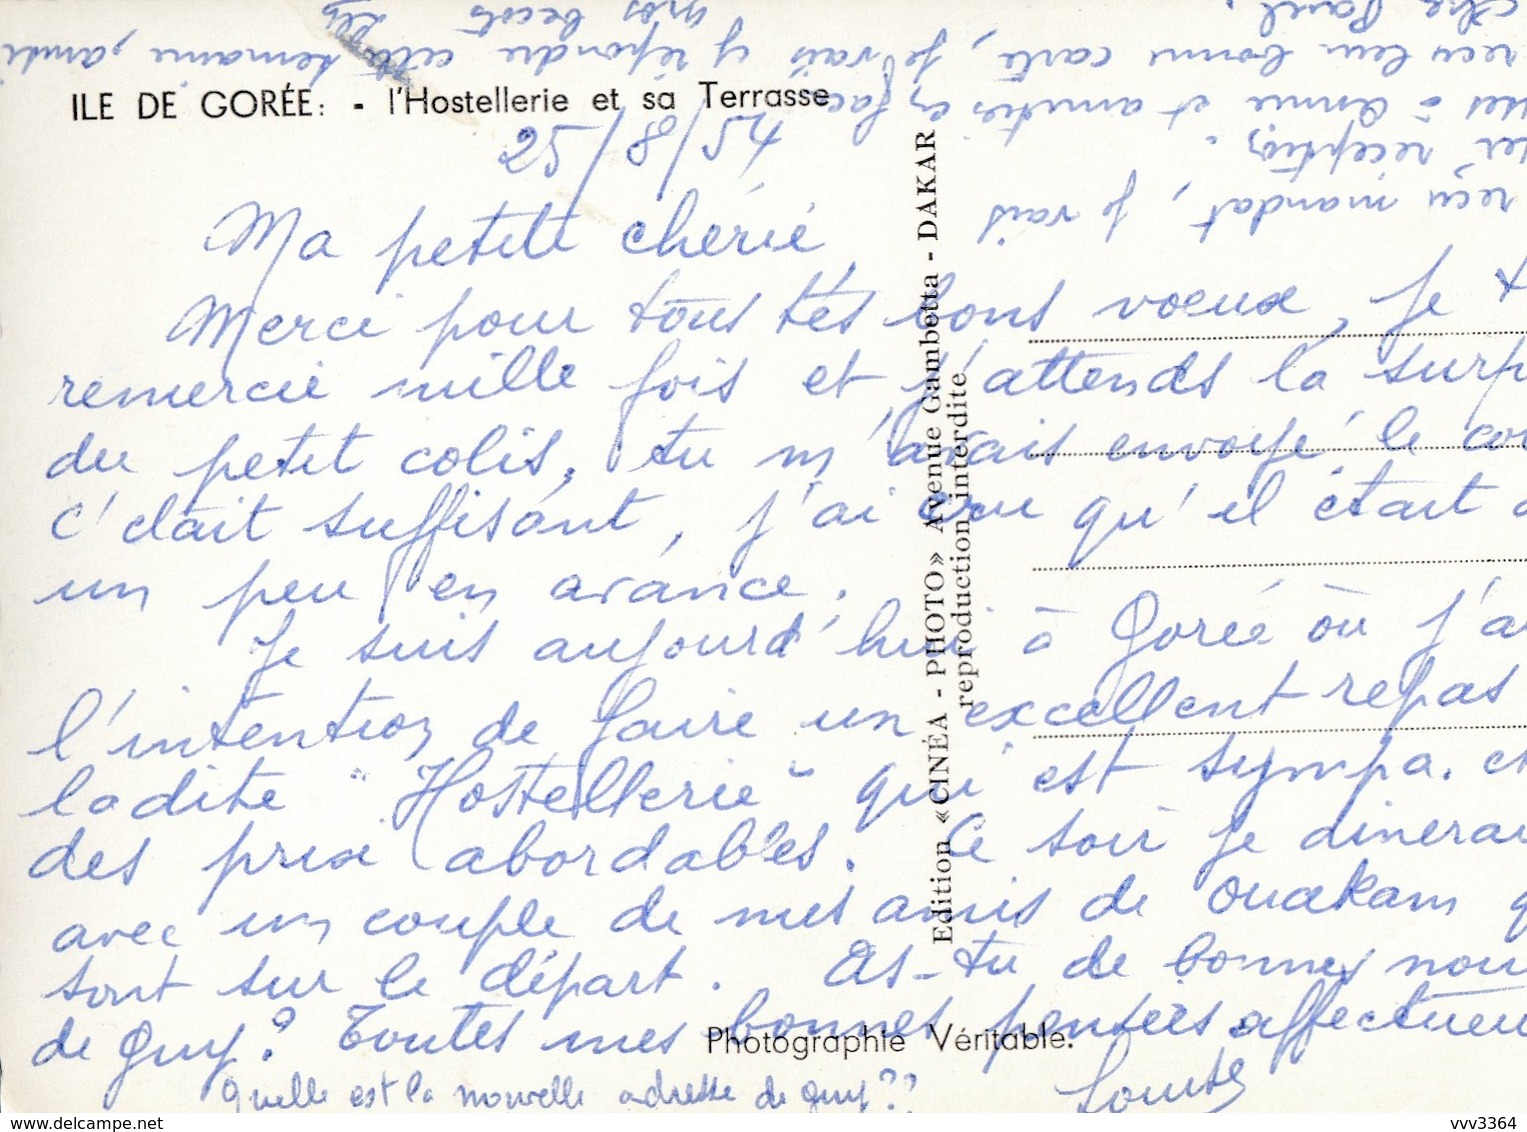 ILE DE GORÉE: - l'Hostellerie et sa Terrasse
25/8/54
Ma petite chérie,
Merci pour tous tes bons voeux, Je
remercie mille fois et j'attends la surp
du petit colis, tu m'avais envoyé le
c'était suffisant, j'ai cru qu'il était
un peu en avance.
Je suis aujourd'hui à Gorée où j'a
l'intention de faire un excellent repas
ladite "Hostellerie" qui est sympa. et
des prix abordables. Ce soir je dinerai
avec un couple de mes amis de Ouakam q
sont sur le départ. As-tu de bonnes nou
de Guy? Toutes mes bonnes pensées affectueu
Quelle est la nouvelle adresse de Guy??
reçu mandat, je vais
réception.
à Annie et amitiés en fac
reçu leur bonne carte, je vais y répondre cette semaine, amiti
Paul.
gros becots
Edition «CINÉA - PHOTO» Avenue Gambetta - DAKAR
reproduction interdite
Photographie Véritable.
www.delcampe.net
vvv3364